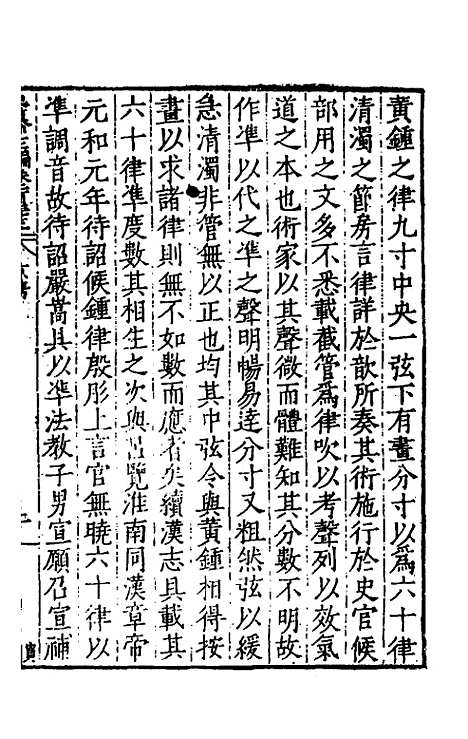 黄鍾之律九寸中央一弦下有畫分寸以爲六十律
清濁之節房言律詳於歆所奏其術施行於史官候
部用之文多不悉載截管爲律吹以考聲列以效氣
道之本也術家以其聲微而體難知其分數不明故
作準以代之準之聲明暢易達分寸又粗然弦以緩
急清濁非管無以正也均其中弦令與黄鍾相得按
畫以求諸律則無不如數而應者矣續漢志具載其
六十律準度數其相生之次與呂覽淮南同漢章帝
元和元年待詔候鍾律殷肜上言官無曉六十律以
準調音故待詔嚴嵩具以準法教子男宣願召宣補